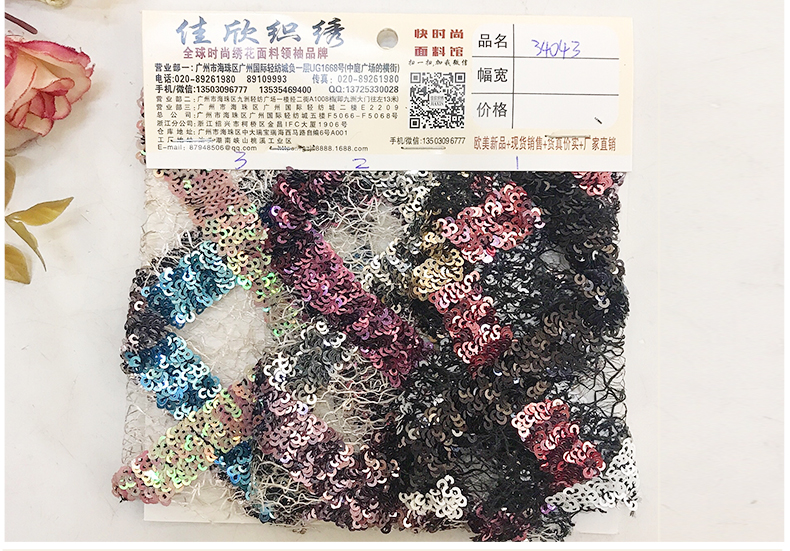 佳欣织绣
全球时尚绣花面料领袖品牌
营业部一:广州市海珠区广州国际轻纺城负一层UG1668号(中庭广场的横街)
电话:020-89261980 89109993 传真:020-89261980
手机/微信:13503096777 13535469400 QQ:13725330028
营业部二:广州市海珠区九洲轻纺广场一楼经二街A1008档(即九洲大门往左13米)
营业部三:广州市海珠区广州国际轻纺城二楼E2209
总公司:广州市海珠区广州国际轻纺城五楼F5066-F5068号
浙江分公司:浙江绍兴市柯桥区金昌IFC大厦1906号
仓库地址:广州市海珠区中大瑞宝瑞海西马路自编6号A001
湖南峡山桃溪工业区
E-mail:87948506@qq.com
8888.1688.com
手机/微信:13503096777
快时尚
面料馆
扫一扫,加我微信
品名 34043
幅宽
价格
欧美新品+现货销售+货真价实+厂家直销
3 2 1